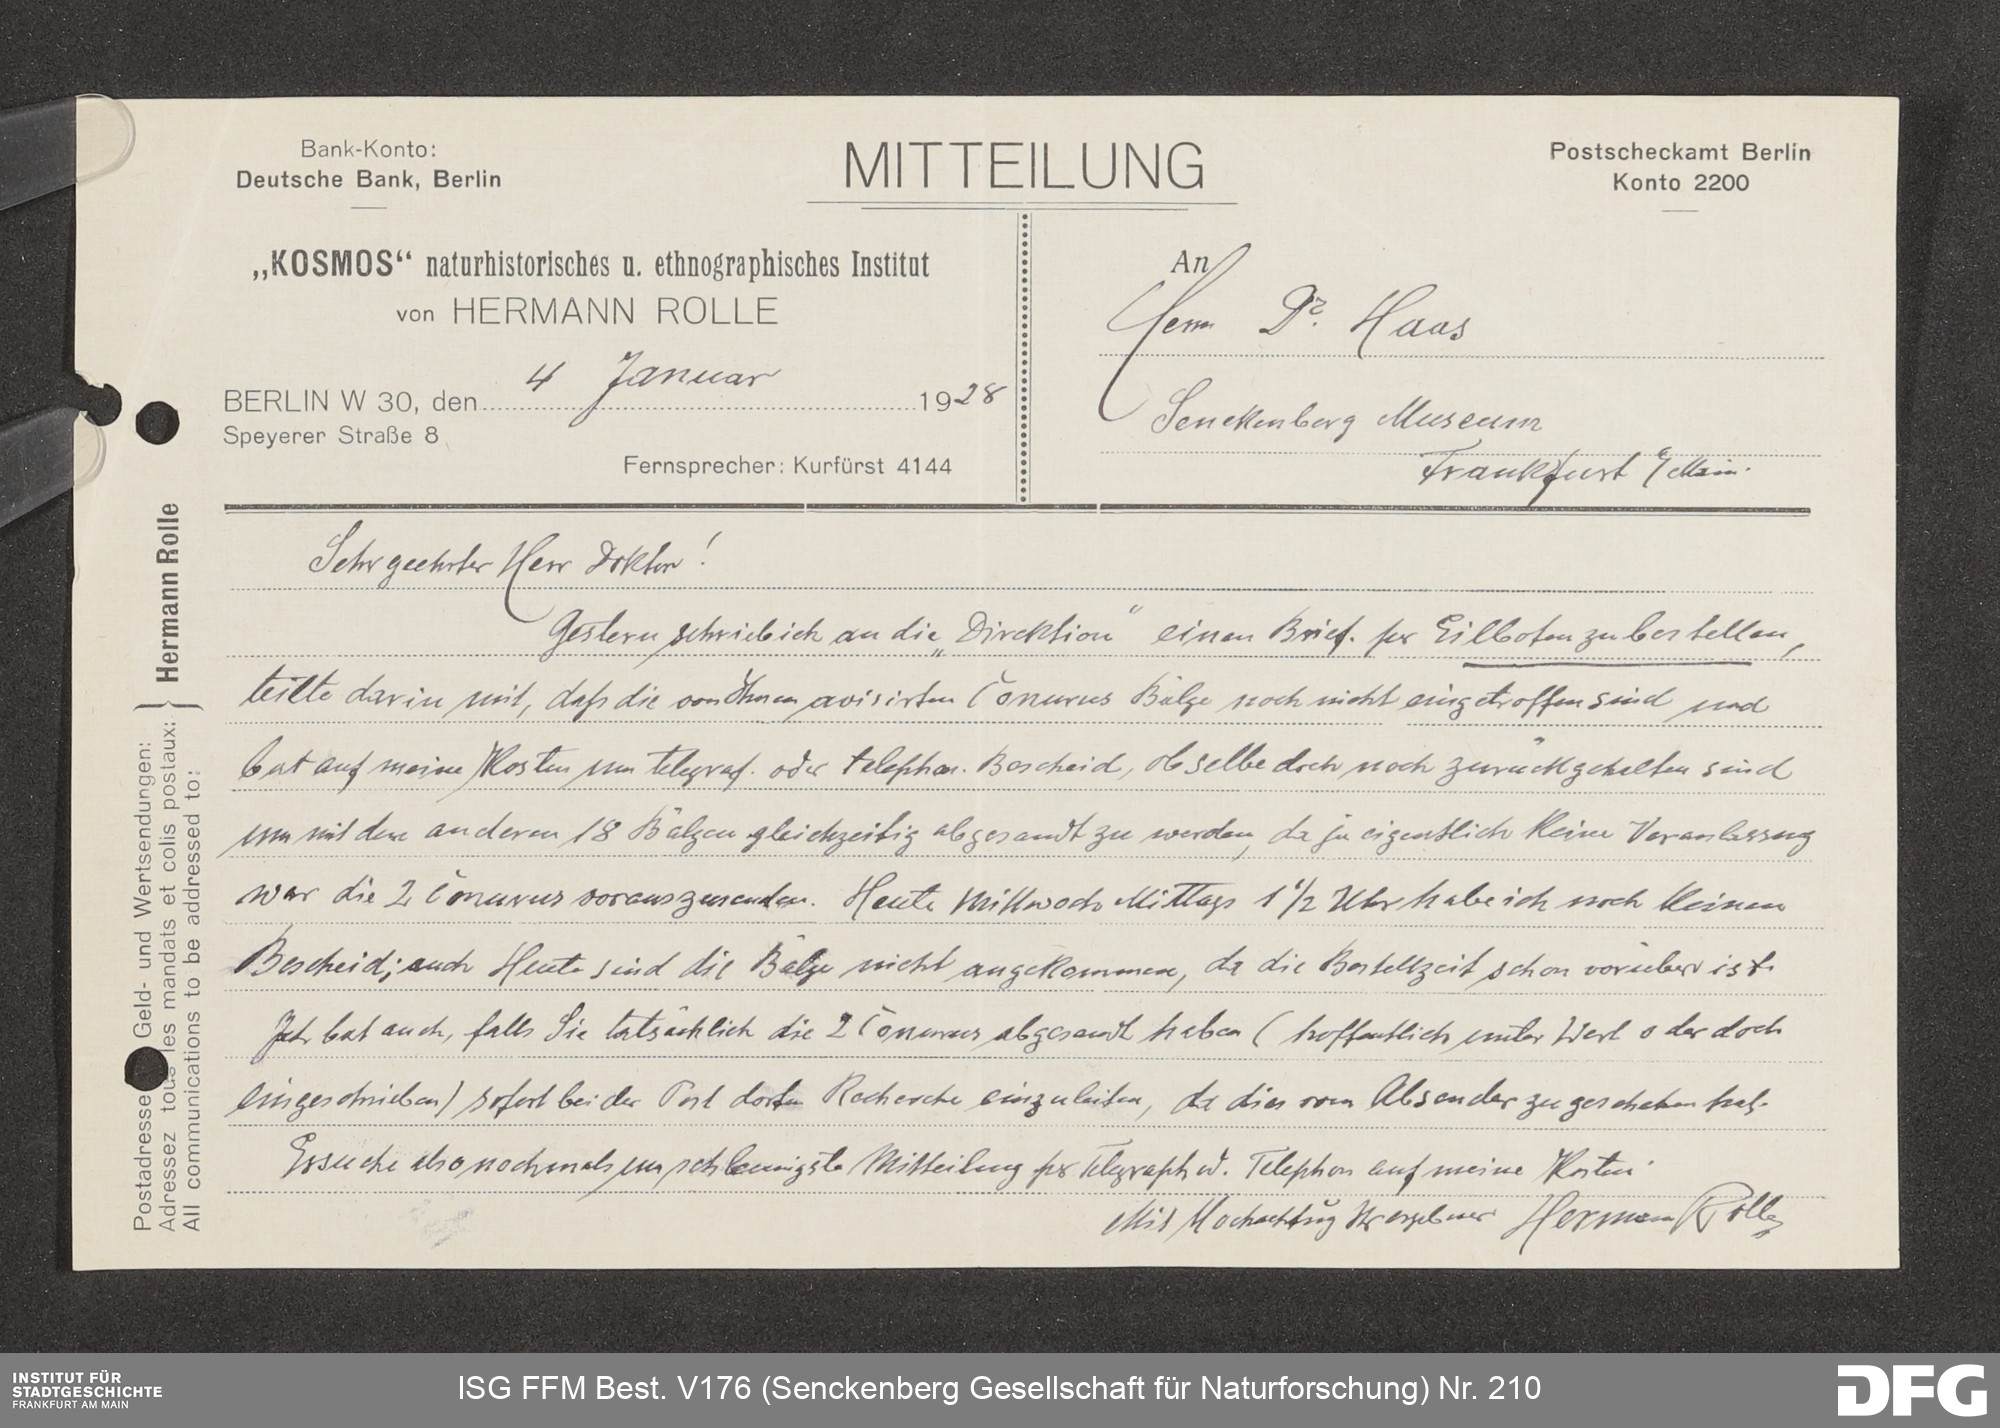 Bank-Konto:
Deutsche Bank, Berlin
MITTEILUNG
Postscheckamt Berlin
Konto 2200
„KOSMOS“ naturhistorisches u. ethnographisches Institut
von HERMANN ROLLE
BERLIN W 30, den 4 Januar 1928
Speyerer Straße 8
Fernsprecher: Kurfürst 4144
An
Herrn Dr. Haas
Senckenberg Museum
Frankfurt a/Main.
Postadresse Geld- und Wertsendungen:
Adressez tous les mandats et colis postaux:
All communications to be addressed to:
} Hermann Rolle
Sehr geehrter Herr Doktor!
Gestern schrieb ich an die „Direktion“ einen Brief. per Eilboten zu bestellen,
teilte darin mit, daß die von Ihnen avisirten Conurus Bälge noch nicht eingetroffen sind und
bat auf meine Kosten um telegraf. oder telephon. Bescheid, ob selbe doch noch zurückgehalten sind
um mit den anderen 18 Bälgen gleichzeitig abgesandt zu werden, da ja eigentlich keine Veranlassung
war die 2 Conurus vorauszusenden. Heute Mittwoch Mittags 1 1/2 Uhr habe ich noch keinen
Bescheid; auch Heute sind die Bälge nicht angekommen, da die Bestellzeit schon vorüber ist.
Ich bat auch, falls Sie tatsächlich die 2 Conurus abgesandt haben (hoffentlich unter Wert oder doch
eingeschrieben) sofort bei der Post dorten Recherche einzuleiten, da dies vom Absender zu geschehen hat.
Ersuche also nochmals um schleunigste Mitteilung per Telegraph od. Telephon auf meine Kosten.
Mit Hochachtung Ihr ergebener Hermann Rolle
INSTITUT FÜR
STADTGESCHICHTE
FRANKFURT AM MAIN
ISG FFM Best. V176 (Senckenberg Gesellschaft für Naturforschung) Nr. 210
DFG